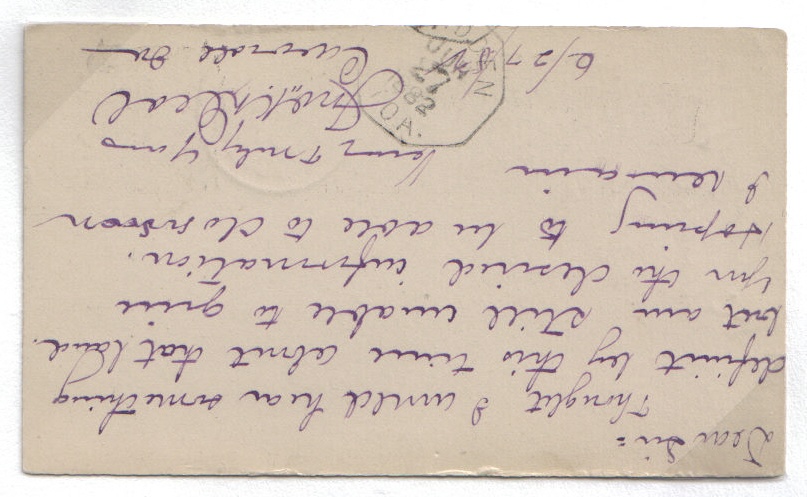 Dear Sir:
Thought I would hear something
definit by this time about that land.
but am still unable to give
you the desired information.
Hoping to be able to do so soon
I remain
Very Truly Yours
6/27/
JUN 27
IOA.